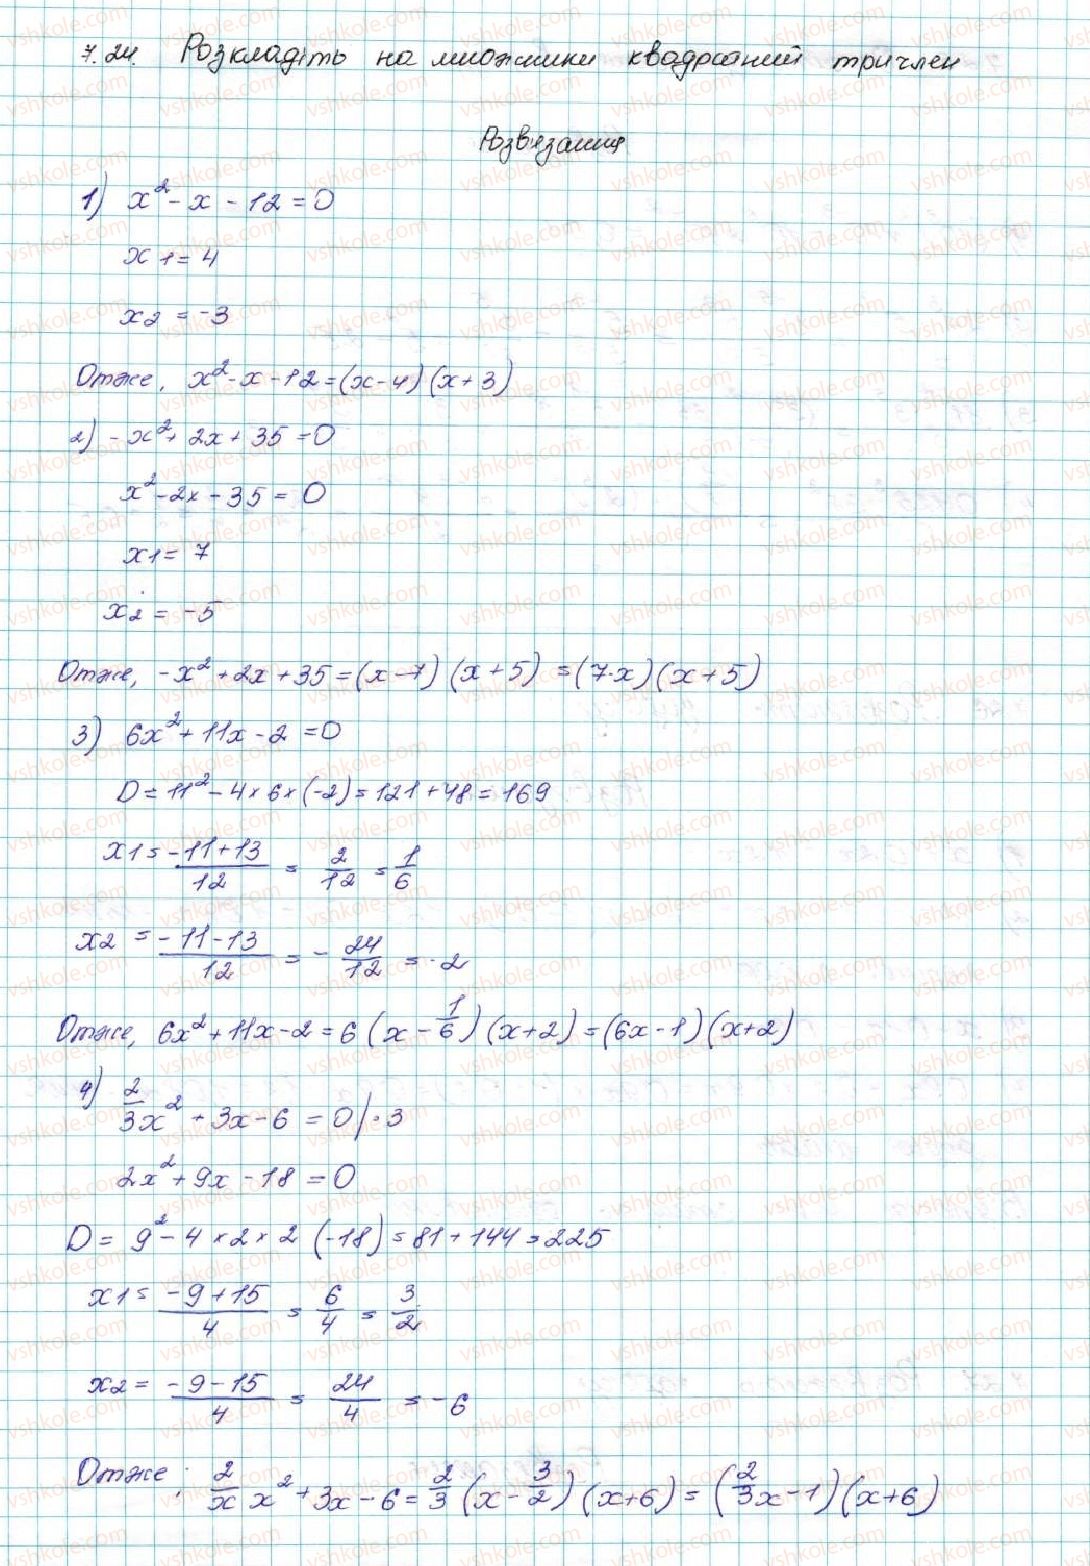 7.24. Розкладіть на множники квадратний тричлен
Розв'язання
1) x² - x - 12 = 0
x1 = 4
x2 = -3
Отже, x² - x - 12 = (x - 4) (x + 3)
2) -x² + 2x + 35 = 0
x² - 2x - 35 = 0
x1 = 7
x2 = -5
Отже, -x² + 2x + 35 = (x - 7) (x + 5) = (7 - x) (x + 5)
3) 6x² + 11x - 2 = 0
D = 11² - 4 × 6 × (-2) = 121 + 48 = 169
x1 = (-11 + 13)/12 = 2/12 = 1/6
x2 = (-11 - 13)/12 = - 24/12 = -2
Отже, 6x² + 11x - 2 = 6 (x - 1/6) (x + 2) = (6x - 1) (x + 2)
4) 2/3x² + 3x - 6 = 0 / · 3
2x² + 9x - 18 = 0
D = 9² - 4 × 2 × 2 (-18) = 81 + 144 = 225
x1 = (-9 + 15)/4 = 6/4 = 3/2
x2 = (-9 - 15)/4 = 24/4 = -6
Отже; 2/x x² + 3x - 6 = 2/3 (x - 3/2) (x + 6) = (2/3x - 1) (x + 6)